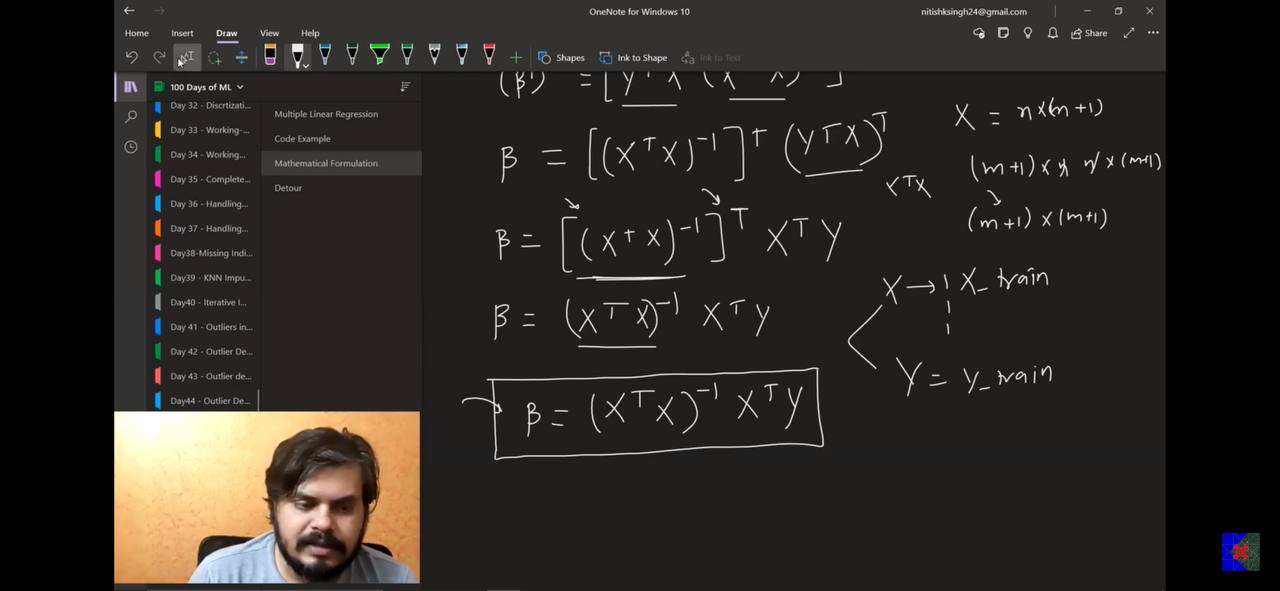 OneNote for Windows 10
nitishksingh24@gmail.com
Home Insert Draw View Help
Share
Shapes Ink to Shape Ink to Text
100 Days of ML
Day 32 - Discrtizati...
Day 33 - Working-...
Day 34 - Working...
Day 35 - Complete...
Day 36 - Handling...
Day 37 - Handling...
Day38-Missing Indi...
Day39 - KNN Impu...
Day40 - Iterative I...
Day 41 - Outliers in...
Day 42 - Outlier De...
Day 43 - Outlier de...
Day44 - Outlier De...
Multiple Linear Regression
Code Example
Mathematical Formulation
Detour
β = [(XᵀX)⁻¹]ᵀ (YᵀX)ᵀ
β = [(XᵀX)⁻¹]ᵀ XᵀY
β = (XᵀX)⁻¹ XᵀY
β = (XᵀX)⁻¹ XᵀY
X = n×(m+1)
XᵀX
(m+1)×(m+1)
X → X_train
Y = y_train